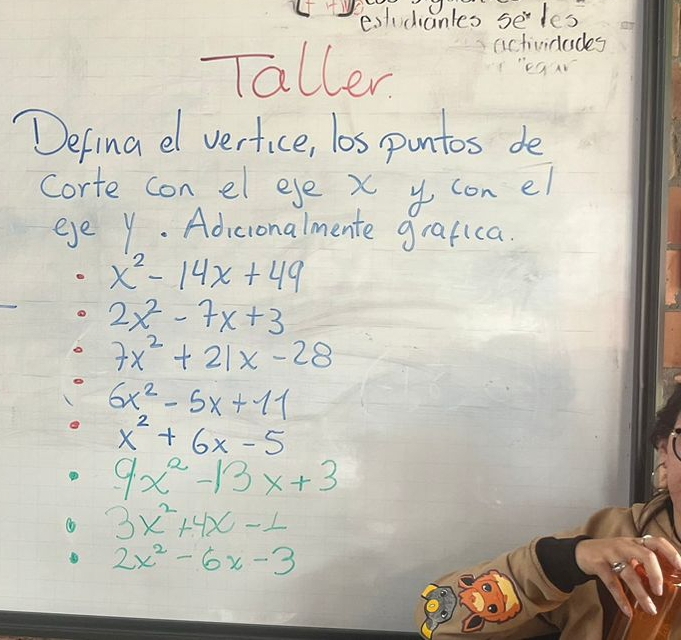 estudiantes se les
actividades
Taller.
Defina el vertice, los puntos de
corte con el eje x y con el
eje y. Adicionalmente grafica.
• x² - 14x + 49
• 2x² - 7x + 3
• 7x² + 21x - 28
• 6x² - 5x + 11
• x² + 6x - 5
• 9x² - 13x + 3
• 3x² + 4x - 1
• 2x² - 6x - 3